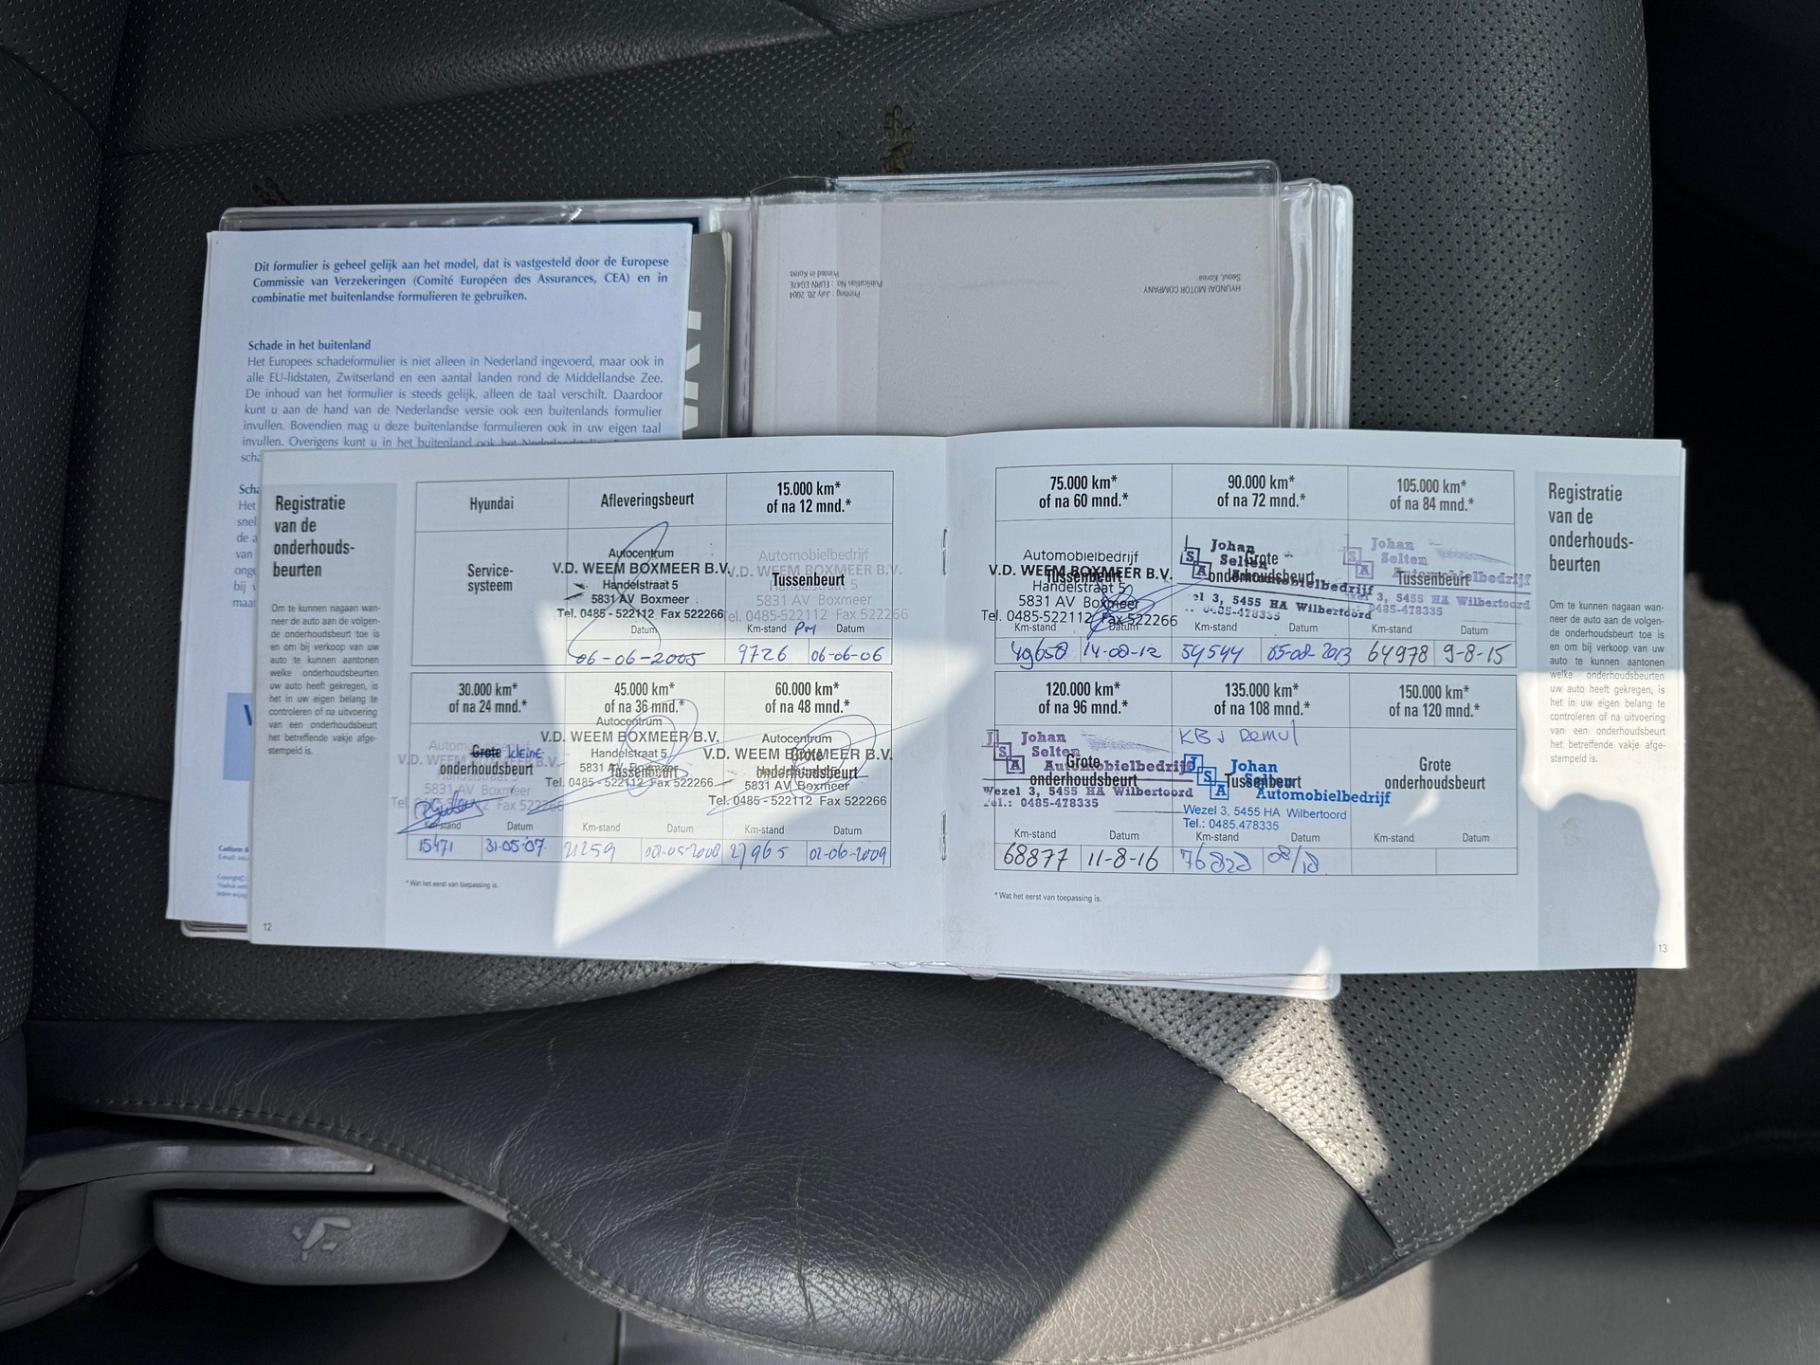 Dit formulier is geheel gelijk aan het model, dat is vastgesteld door de Europese
Commissie van Verzekeringen (Comité Européen des Assurances, CEA) en in
combinatie met buitenlandse formulieren te gebruiken.
Schade in het buitenland
Het Europees schadeformulier is niet alleen in Nederland ingevoerd, maar ook in
alle EU-lidstaten, Zwitserland en een aantal landen rond de Middellandse Zee.
De inhoud van het formulier is steeds gelijk, alleen de taal verschilt. Daardoor
kunt u aan de hand van de Nederlandse versie ook een buitenlands formulier
invullen. Bovendien mag u deze buitenlandse formulieren ook in uw eigen taal
invullen. Overigens kunt u in het buitenland ook het
HYUNDAI MOTOR COMPANY
Seoul, Korea
Printing : July 20, 2004
Publication No. : EURN
Printed in Korea
Registratie
van de
onderhouds-
beurten
Om te kunnen nagaan wan-
neer de auto aan de volgen-
de onderhoudsbeurt toe is
en om bij verkoop van uw
auto te kunnen aantonen
welke onderhoudsbeurten
uw auto heeft gekregen, is
het in uw eigen belang te
controleren of na uitvoering
van een onderhoudsbeurt
het betreffende vakje afge-
stempeld is.
Hyundai
Afleveringsbeurt
15.000 km*
of na 12 mnd.*
Service-
systeem
Autocentrum
V.D. WEEM BOXMEER B.V.
Handelstraat 5
5831 AV Boxmeer
Tel. 0485 - 522112 Fax 522266
Datum
06-06-2005
Automobielbedrijf
V.D. WEEM BOXMEER B.V.
Tussenbeurt
5831 AV Boxmeer
Tel. 0485-522112 Fax 522266
Km-stand PM Datum
9726 06-06-06
30.000 km*
of na 24 mnd.*
45.000 km*
of na 36 mnd.*
60.000 km*
of na 48 mnd.*
Grote kleine
V.D. WEEM BOXMEER B.V.
onderhoudsbeurt
5831 AV Boxmeer
Km-stand Datum
15471 31-05-07
Autocentrum
V.D. WEEM BOXMEER B.V.
Handelstraat 5
5831 AV Boxmeer
Tussenbeurt
Tel. 0485 - 522112 Fax 522266
Km-stand Datum
21259
Autocentrum
V.D. WEEM BOXMEER B.V.
Grote
onderhoudsbeurt
5831 AV Boxmeer
Tel. 0485 - 522112 Fax 522266
Km-stand Datum
27965 02-06-2009
* Wat het eerst van toepassing is.
12
75.000 km*
of na 60 mnd.*
90.000 km*
of na 72 mnd.*
105.000 km*
of na 84 mnd.*
Automobielbedrijf
V.D. WEEM BOXMEER B.V.
Tussenbeurt
Handelstraat 5
5831 AV Boxmeer
Tel. 0485-522112 Fax 522266
Km-stand Datum
49650 14-08-12
Johan
Selten
Automobielbedrijf
Grote
onderhoudsbeurt
5455 HA Wilbertoord
Km-stand Datum
54544 05-08-2013
Johan
Selten
Automobielbedrijf
Tussenbeurt
3, 5455 HA Wilbertoord
0485-478335
Km-stand Datum
64978 9-8-15
120.000 km*
of na 96 mnd.*
135.000 km*
of na 108 mnd.*
150.000 km*
of na 120 mnd.*
J S A
Johan
Selten
Automobielbedrijf
Grote
onderhoudsbeurt
Wezel 3, 5455 HA Wilbertoord
Tel.: 0485-478335
Km-stand Datum
68877 11-8-16
J S A
Johan
Selten
Tussenbeurt
Automobielbedrijf
Wezel 3, 5455 HA Wilbertoord
Tel.: 0485.478335
Km-stand Datum
08/18
Grote
onderhoudsbeurt
Km-stand Datum
* Wat het eerst van toepassing is.
Registratie
van de
onderhouds-
beurten
Om te kunnen nagaan wan-
neer de auto aan de volgen-
de onderhoudsbeurt toe is
en om bij verkoop van uw
auto te kunnen aantonen
welke onderhoudsbeurten
uw auto heeft gekregen, is
het in uw eigen belang te
controleren of na uitvoering
van een onderhoudsbeurt
het betreffende vakje afge-
stempeld is.
13